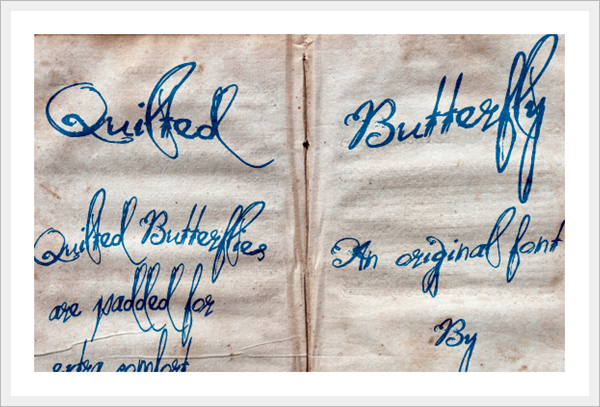 Quilted
Quilted Butterflies
are padded for
extra comfort
Butterfly
An original font
By